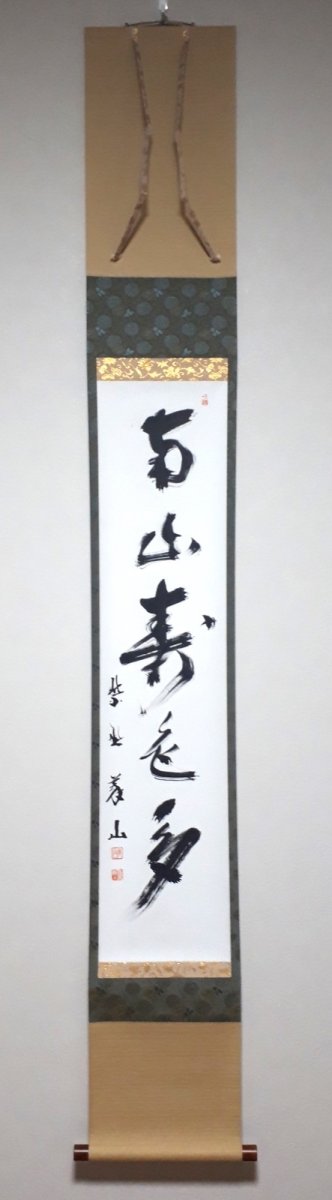 南山寿色多
紫野義山